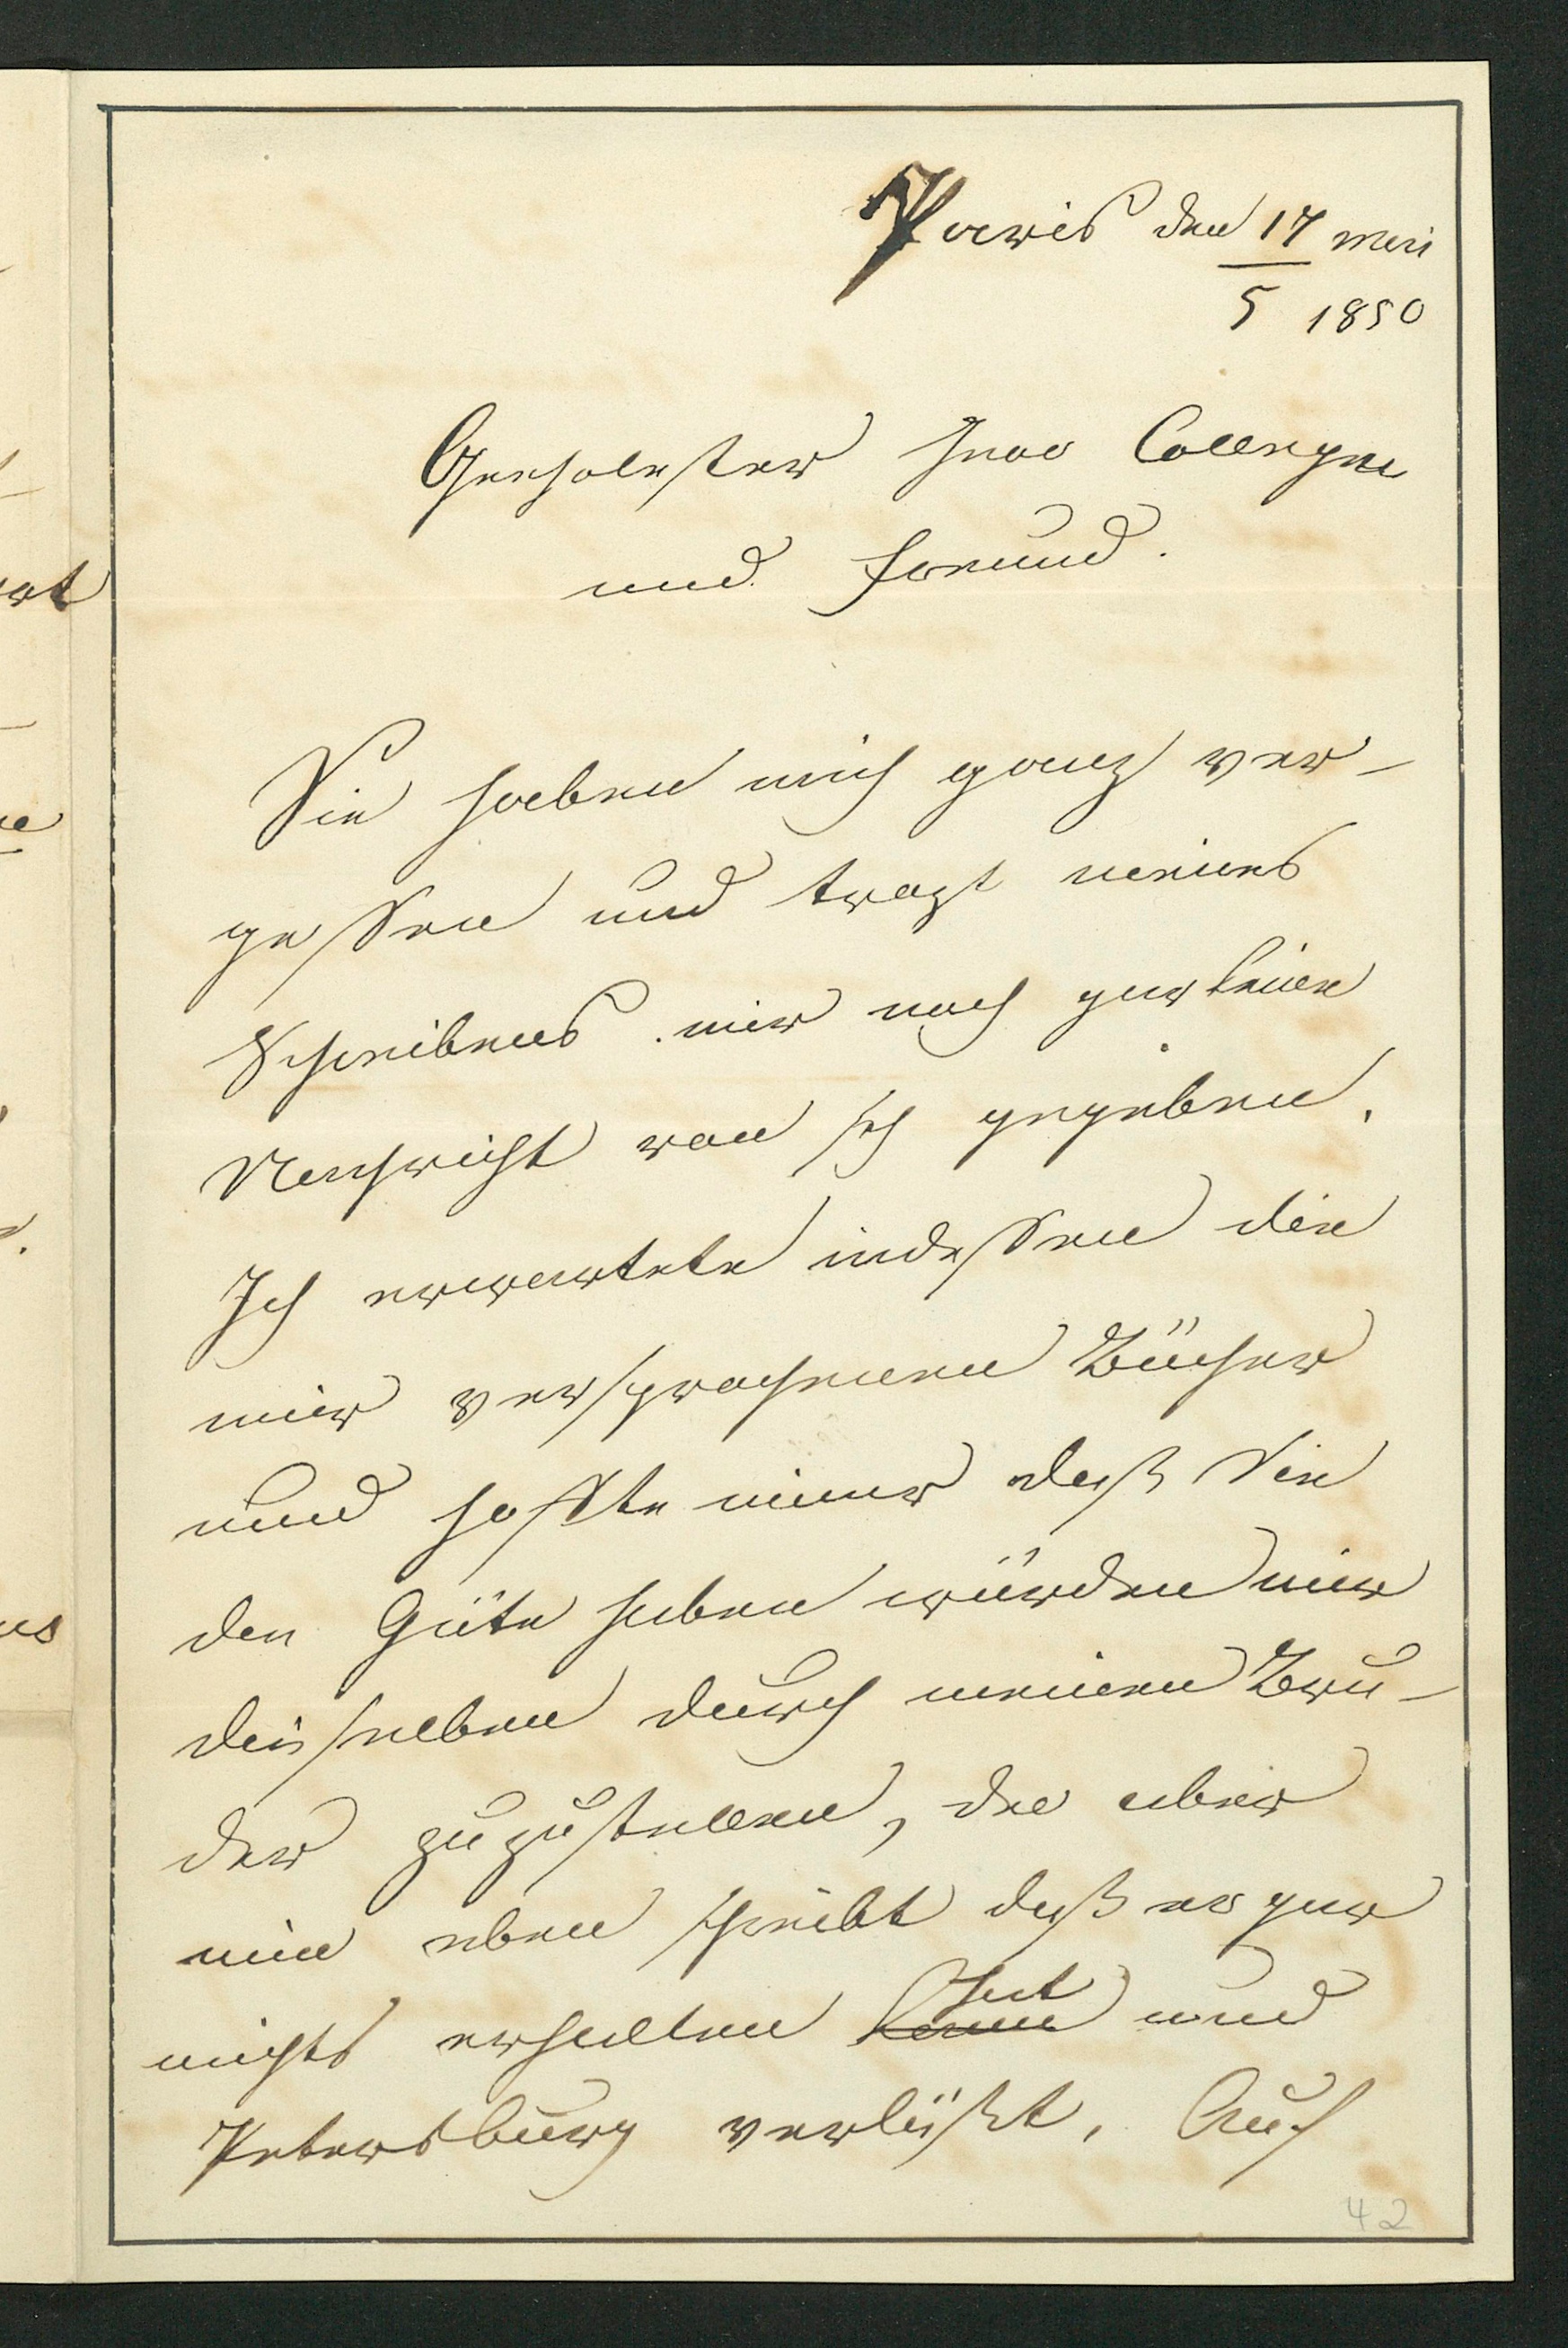 Paris den 17 mai
5 1850
Geehrtester Herr College
und Freund.
Sie haben mich ganz ver-
gessen und trozt meines
Schreibens mir noch gar keine
Nachricht von sich gegeben.
Ich erwartete indessen die
mir versprochenen Bücher
und hoffte immer daß Sie
den Güte haben würden mir
dieselben durch meinen Bru-
der zuzustellen, da aber
mir eben schreibt daß er gar
nichts erhalten hat und
Petersburg verläßt. Auf
42